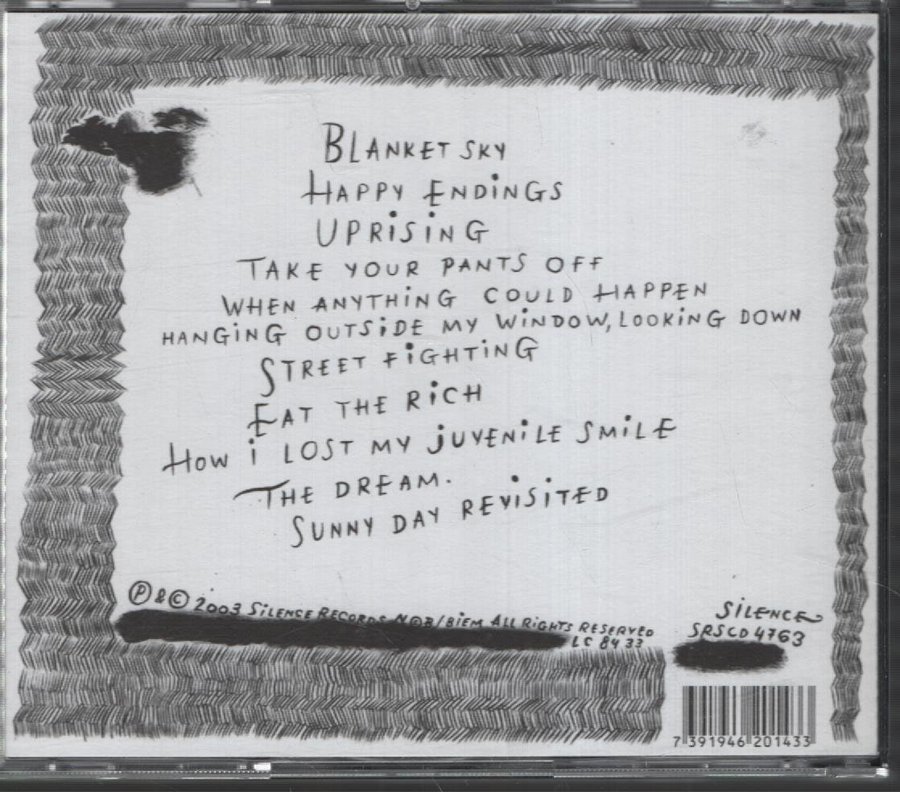 BLANKET SKY
HAPPY ENDINGS
UPRiSiNG
TAKE YOUR PANTS OFF
WHEN ANYTHiNG COULD HAPPEN
HANGiNG OUTSiDE MY WiNDOW, LOOKiNG DOWN
STREET FiGHTiNG
EAT THE RiCH
HOW i LOST MY jUVENiLE SMiLE
THE DREAM.
SUNNY DAY REViSiTED
Ⓟ & © 2003 SiLENCE RECORDS NCB/BiEM ALL RiGHTS RESERVED
LC 8433
SiLENCE
SRSCD 4763
7 391946 201433